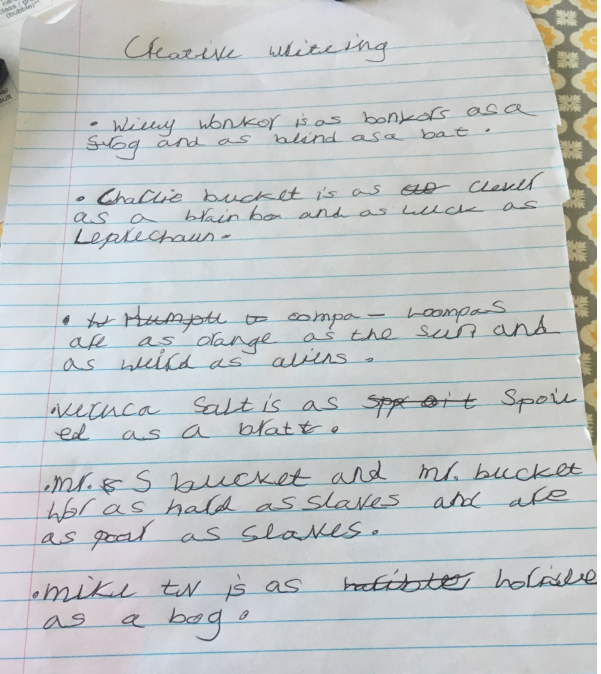 Creative writeing
• Willy wonkor is as bonkors as a
frog and as blind as a bat.
• Charlie bucket is as clever
as a brain box and as luck as
Leprechaun.
• oompa - loompas
are as orange as the sun and
as weird as aliens.
• veruca Salt is as Spoil
ed as a bratt.
• mr. S bucket and mr. bucket
wor as hard as slaves and are
as poor as slaves.
• mike tv is as
as a bog.